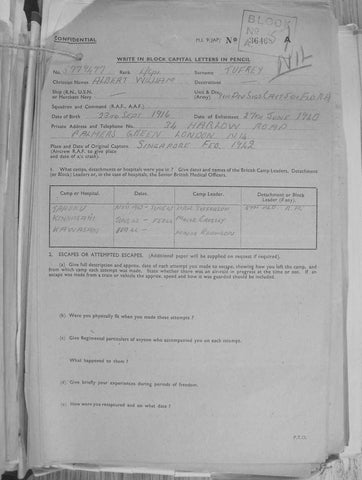 CONFIDENTIAL
M.I. 9/JAP/ No A
BLOCK
NIL
WRITE IN BLOCK CAPITAL LETTERS IN PENCIL
No. 5779677 Rank Surname TUFFEY
Christian Names ALBERT WILLIAM Decorations
Ship (R.N., U.S.N. or Merchant Navy) Unit & Div. (Army)
Squadron and Command (R.A.F., A.A.F.)
Date of Birth 23RD SEPT. 1916 Date of Enlistment 27TH JUNE 1940
Private Address and Telephone No. 34 HARLOW ROAD
PALMERS GREEN LONDON N.13
Place and Date of Original Capture SINGAPORE FEB. 1942
(Aircrew R.A.F. to give place and date of a/c crash).
1. What camps, or hospitals were you in? Give dates and names of the British Camp Leaders, Detachment (or Block) Leaders or, in the case of hospitals, the Senior British Medical Officers.
Camp or Hospital. Dates. Camp Leader. Detachment or Block Leader (if any).
2. ESCAPES OR ATTEMPTED ESCAPES. (Additional paper will be supplied on request if required).
(a) Give full description and approx. date of each attempt you made to escape, showing how you left the camp, and from which camp each attempt was made. State whether there was an air-raid in progress at the time or not. If an escape was made from a train or vehicle the approx. speed and how it was guarded should be included.
(b) Were you physically fit when you made these attempts?
(c) Give Regimental particulars of anyone who accompanied you on each attempt.
What happened to them?
(d) Give briefly your experiences during periods of freedom.
(e) How were you recaptured and on what date?
P.T.O.